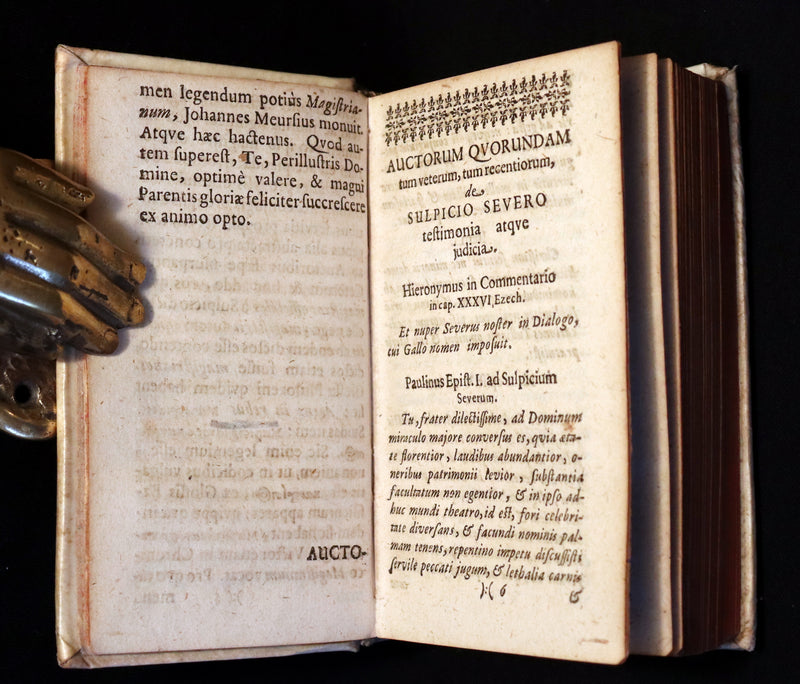 men legendum potiùs Magiſtria-
num, Johannes Meurſius monuit.
Atqve hæc hactenus. Qvod au-
tem ſupereſt, Te, Perilluſtris Do-
mine, optimè valere, & magni
Parentis gloriæ feliciter ſuccreſcere
ex animo opto.
AUCTO-
AUCTORUM QVORUNDAM
tum veterum, tum recentiorum,
de
SULPICIO SEVERO
teſtimonia atqve
judicia.
Hieronymus in Commentario
in cap. XXXVI, Ezech.
Et nuper Severus noſter in Dialogo,
cui Gallo nomen impoſuit.
Paulinus Epiſt. I. ad Sulpicium
Severum.
Tu, frater dilectiſſime, ad Dominum
miraculo majore converſus es, qvia æta-
te florentior, laudibus abundantior, o-
neribus patrimonii levior, ſubſtantia
facultatum non egentior, & in ipſo ad-
huc mundi theatro, id eſt, fori celebri-
tate diverſans, & facundi nominis pal-
mam tenens, repentino impetu diſcuſſiſti
ſervile peccati jugum, & lethalia carnis
):( 6
&